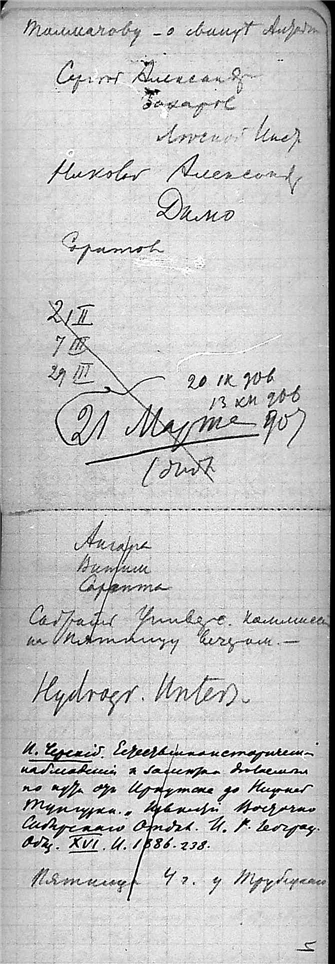 Толмачову – о
Сергей Александр
Захаров
Лесной Инст
Николай Александр
Димо
Саратов
21 II
7 III
29 III
20
13
21 Марта 907
Ангара
Витим
Сарепта
Собрать Универс. Коммисс
на пятницу вечером. —
Hydrogr. Unters.
И. Черский. Естественноисторическ.
наблюдения и заметки
по пути от Иркутска до Нижней
Тунгузки. Восточно
Сибирскаго Отдѣл. И. Р. Географ.
Общ. XVI. 1886. 238.
Пятница 4 г. у Трубецкаго
5